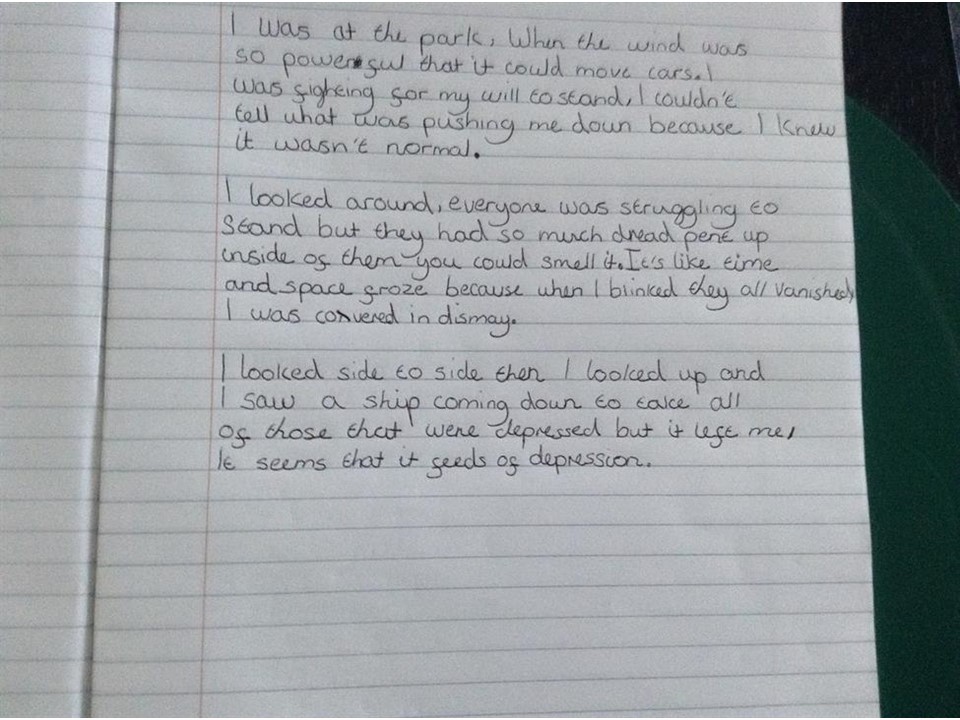 I was at the park, When the wind was
so powerful that it could move cars. I
was fighting for my will to stand, I couldn't
tell what was pushing me down because I knew
it wasn't normal.
I looked around, everyone was struggling to
stand but they had so much dread pent up
inside of them you could smell it. It's like time
and space froze because when I blinked they all vanished,
I was convered in dismay.
I looked side to side then I looked up and
I saw a ship coming down to take all
of those that were depressed but it left me,
It seems that it feeds of depression.